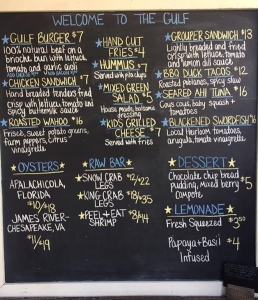 WELCOME TO THE GULF
GULF BURGER $7
100% natural beef on a
brioche bun with lettuce
tomato and garlic aioli
CHICKEN SANDWICH
Hand breaded tenders fried
crisp with lettuce, tomato and
spicy
ROASTED WAHOO $16
Frisee, sweet potato greens,
farm peppers, citrus
vinaigrette
HAND CUT
FRIES $4
HUMMUS $7
Served with pita chips
MIXED GREEN
SALAD $5
House made balsamic
dressing
KIDS GRILLED
CHEESE $7
Served with fries
GROUPER SANDWICH $13
Lightly breaded and fried
crisp with lettuce, tomato
and lemon dill sauce
BBQ DUCK TACOS $12
Roasted poblanos, spicy slaw
SEARED AHI TUNA $16
Cous cous, baby squash +
tomatoes
BLACKENED SWORDFISH $16
Local heirloom tomatoes,
arugula, tomato vinaigrette
OYSTERS
APALACHICOLA,
FLORIDA
$10/$18
JAMES RIVER-
CHESAPEAKE, VA
$11/$19
RAW BAR
SNOW CRAB
LEGS $12/$22
KING CRAB
LEGS $18/$35
PEEL + EAT
SHRIMP $8/$14
DESSERT
Chocolate chip bread
pudding, mixed berry
compote $5
LEMONADE
Fresh Squeezed $3.50
Papaya + Basil
Infused $4